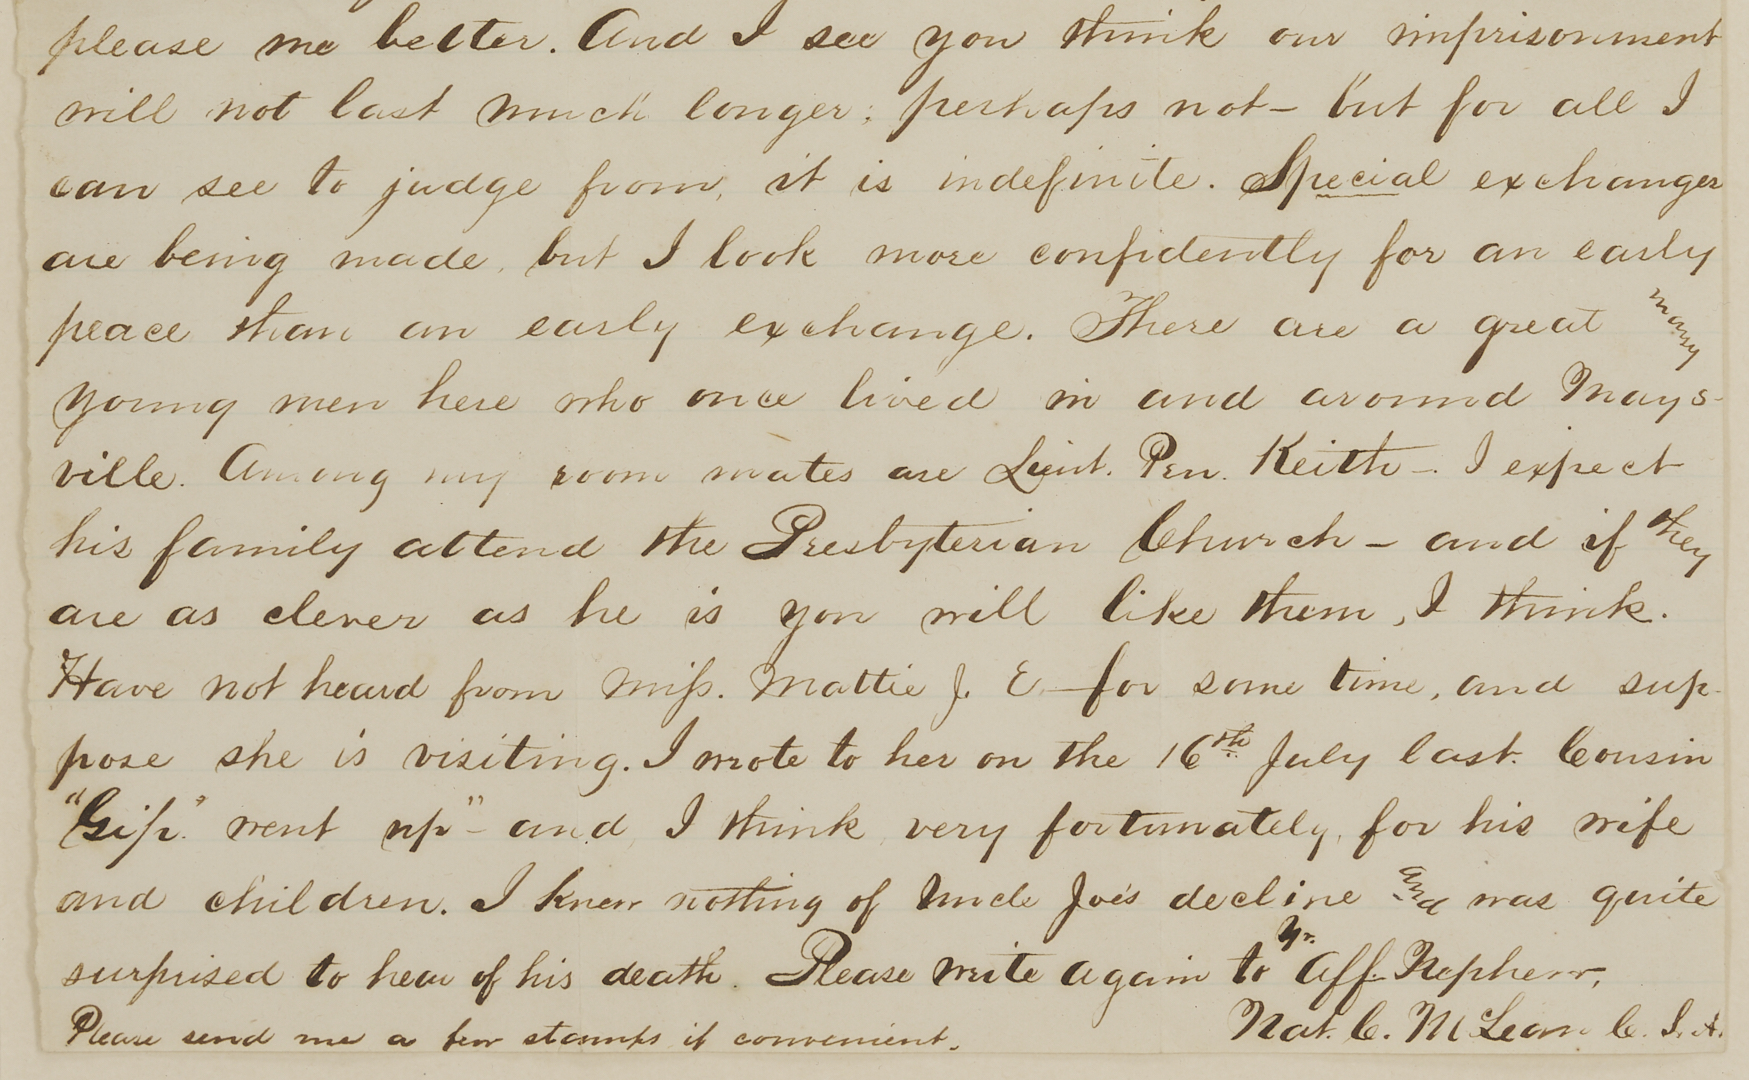 please me better. And I see you think our imprisonment
will not last much longer; perhaps not – but for all I
can see to judge from, it is indefinite. Special exchanges
are being made, but I look more confidently for an early
peace than an early exchange. There are a great many
young men here who once lived in and around Mays-
ville. Among my room mates are Lieut. Pen. Keith –. I expect
his family attend the Presbyterian Church – and if they
are as clever as he is you will like them, I think.
Have not heard from Miss. Mattie J. E. – for some time, and sup-
pose she is visiting. I wrote to her on the 16th July last. Cousin
"Gip." went up" – and, I think very fortunately, for his wife
and children. I knew nothing of Uncle Joe's decline and was quite
surprised to hear of his death. Please write again to Yr. Aff. Nephew,
Nat. C. McLean C. S. A.
Please send me a few stamps if convenient.